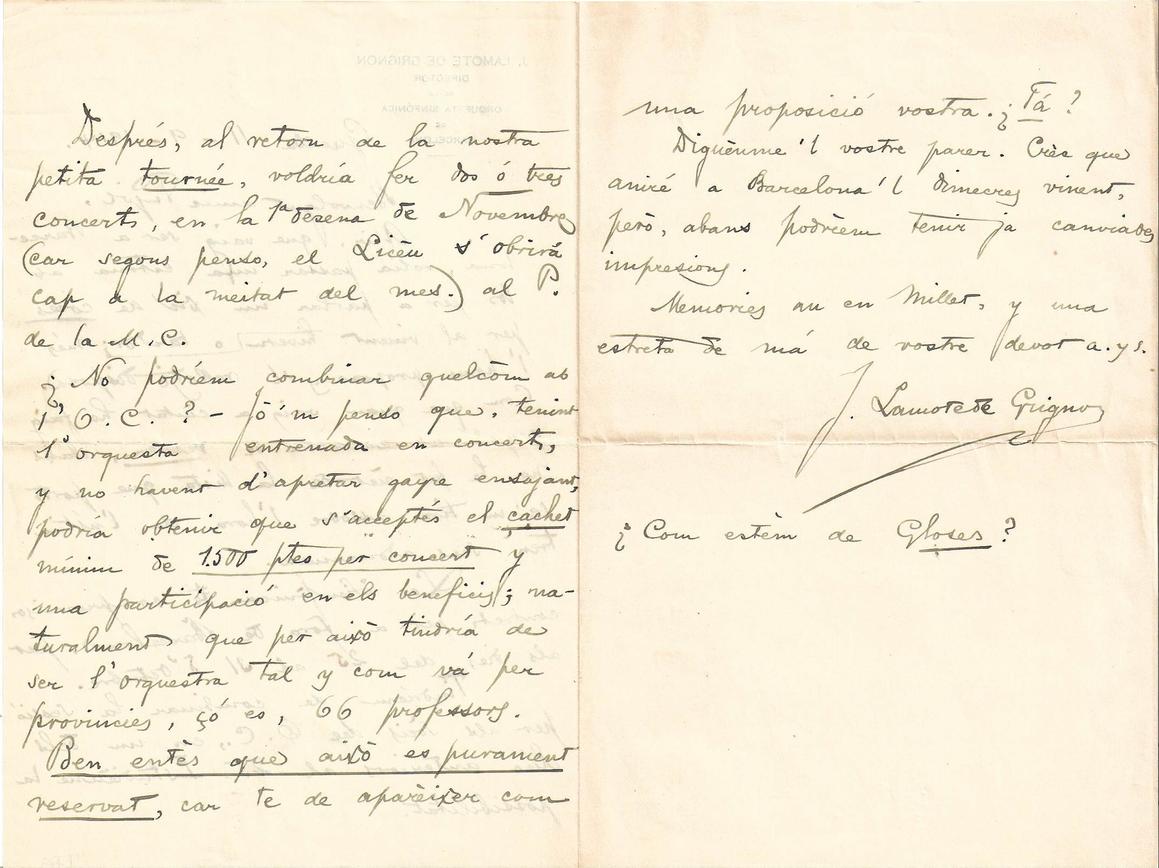 Després, al retorn de la nostra
petita tournée, voldría fer dos ó tres
concerts, en la 1ª desena de Novembre
(car segons penso, el Licèu s'obrirá
cap a la meitat del mes.) al P.
de la M. C.
¿No podríem combinar quelcòm ab
l'O. C.? – Jo'm penso que, tenint
l'orquesta entrenada en concerts,
y no havent d'apretar gayre ensajant,
podría obtenir que s'acceptés el cachet
mínim de 1.500 ptes per concert y
una participació en els beneficis; na-
turalment que per aixó tindría de
ser l'orquestra tal y com vá per
provincies, çó es, 66 professors.
Ben entès que aixó es purament
reservat, car te de aparèixer com
una proposició vostra. ¿Tá?
Diguèume'l vostre parer. Crès que
aniré a Barcelona'l dimecres vinent,
però, abans podríem tenir ja canviades
impresions.
Memories au en Millet, y una
estreta de má de vostre devot a. y s.
J. Lamote de Grignon
¿Com estèm de Gloses?
J. LAMOTE DE GRIGNON
DIRECTOR
ORQUESTA SINFÓNICA